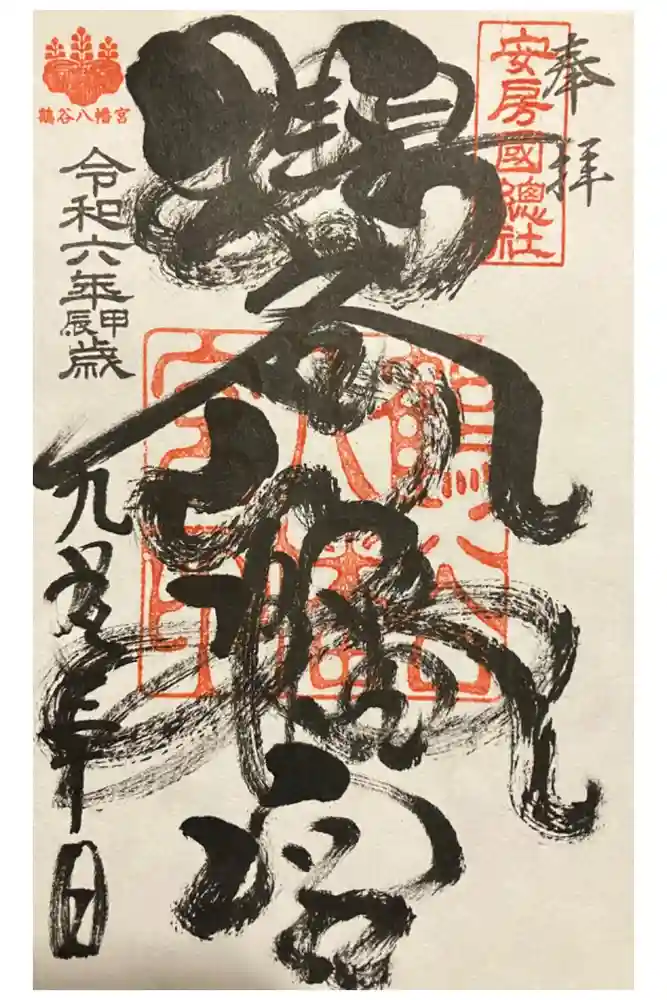 奉拝
安房國總社
鶴谷八幡宮
鶴谷八幡宮
鶴谷八幡宮
令和六年甲辰歳
九月
日